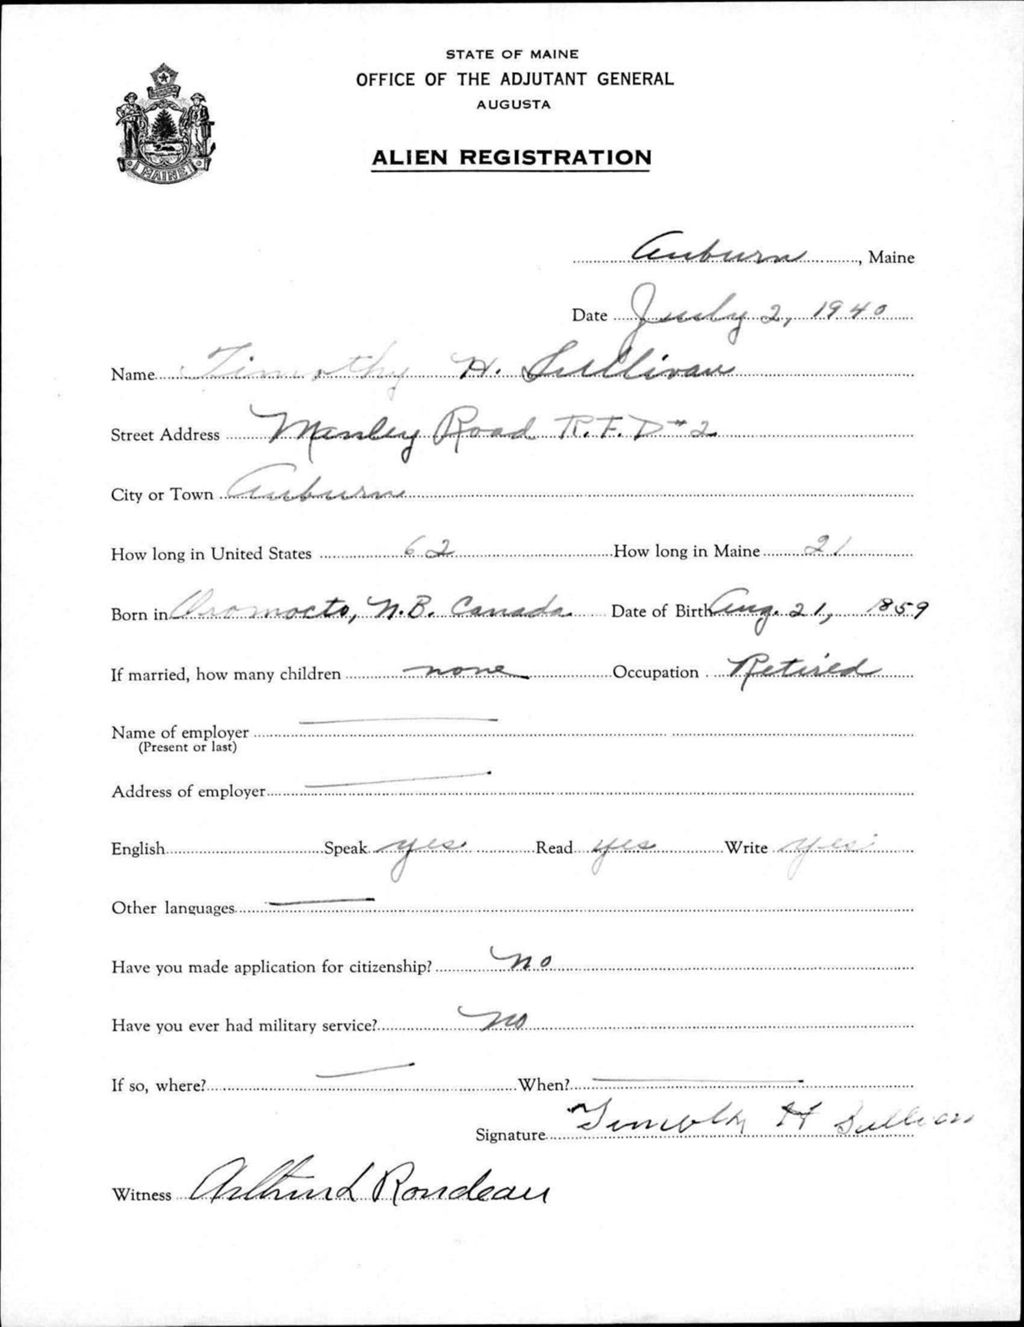 STATE OF MAINE
OFFICE OF THE ADJUTANT GENERAL
AUGUSTA
ALIEN REGISTRATION
MAINE
Auburn, Maine
Date July 2, 1940
Name Timothy H. Sullivan
Street Address Manley Road R.F.D #2
City or Town Auburn
How long in United States 62 How long in Maine 21
Born in Oromocto, N.B. Canada Date of Birth Aug. 21, 1859
If married, how many children none Occupation Retired
Name of employer
(Present or last)
Address of employer
English Speak yes Read yes Write yes
Other languages
Have you made application for citizenship? no
Have you ever had military service? no
If so, where? When?
Signature Timothy H Sullivan
Witness Arthur L Rondeau